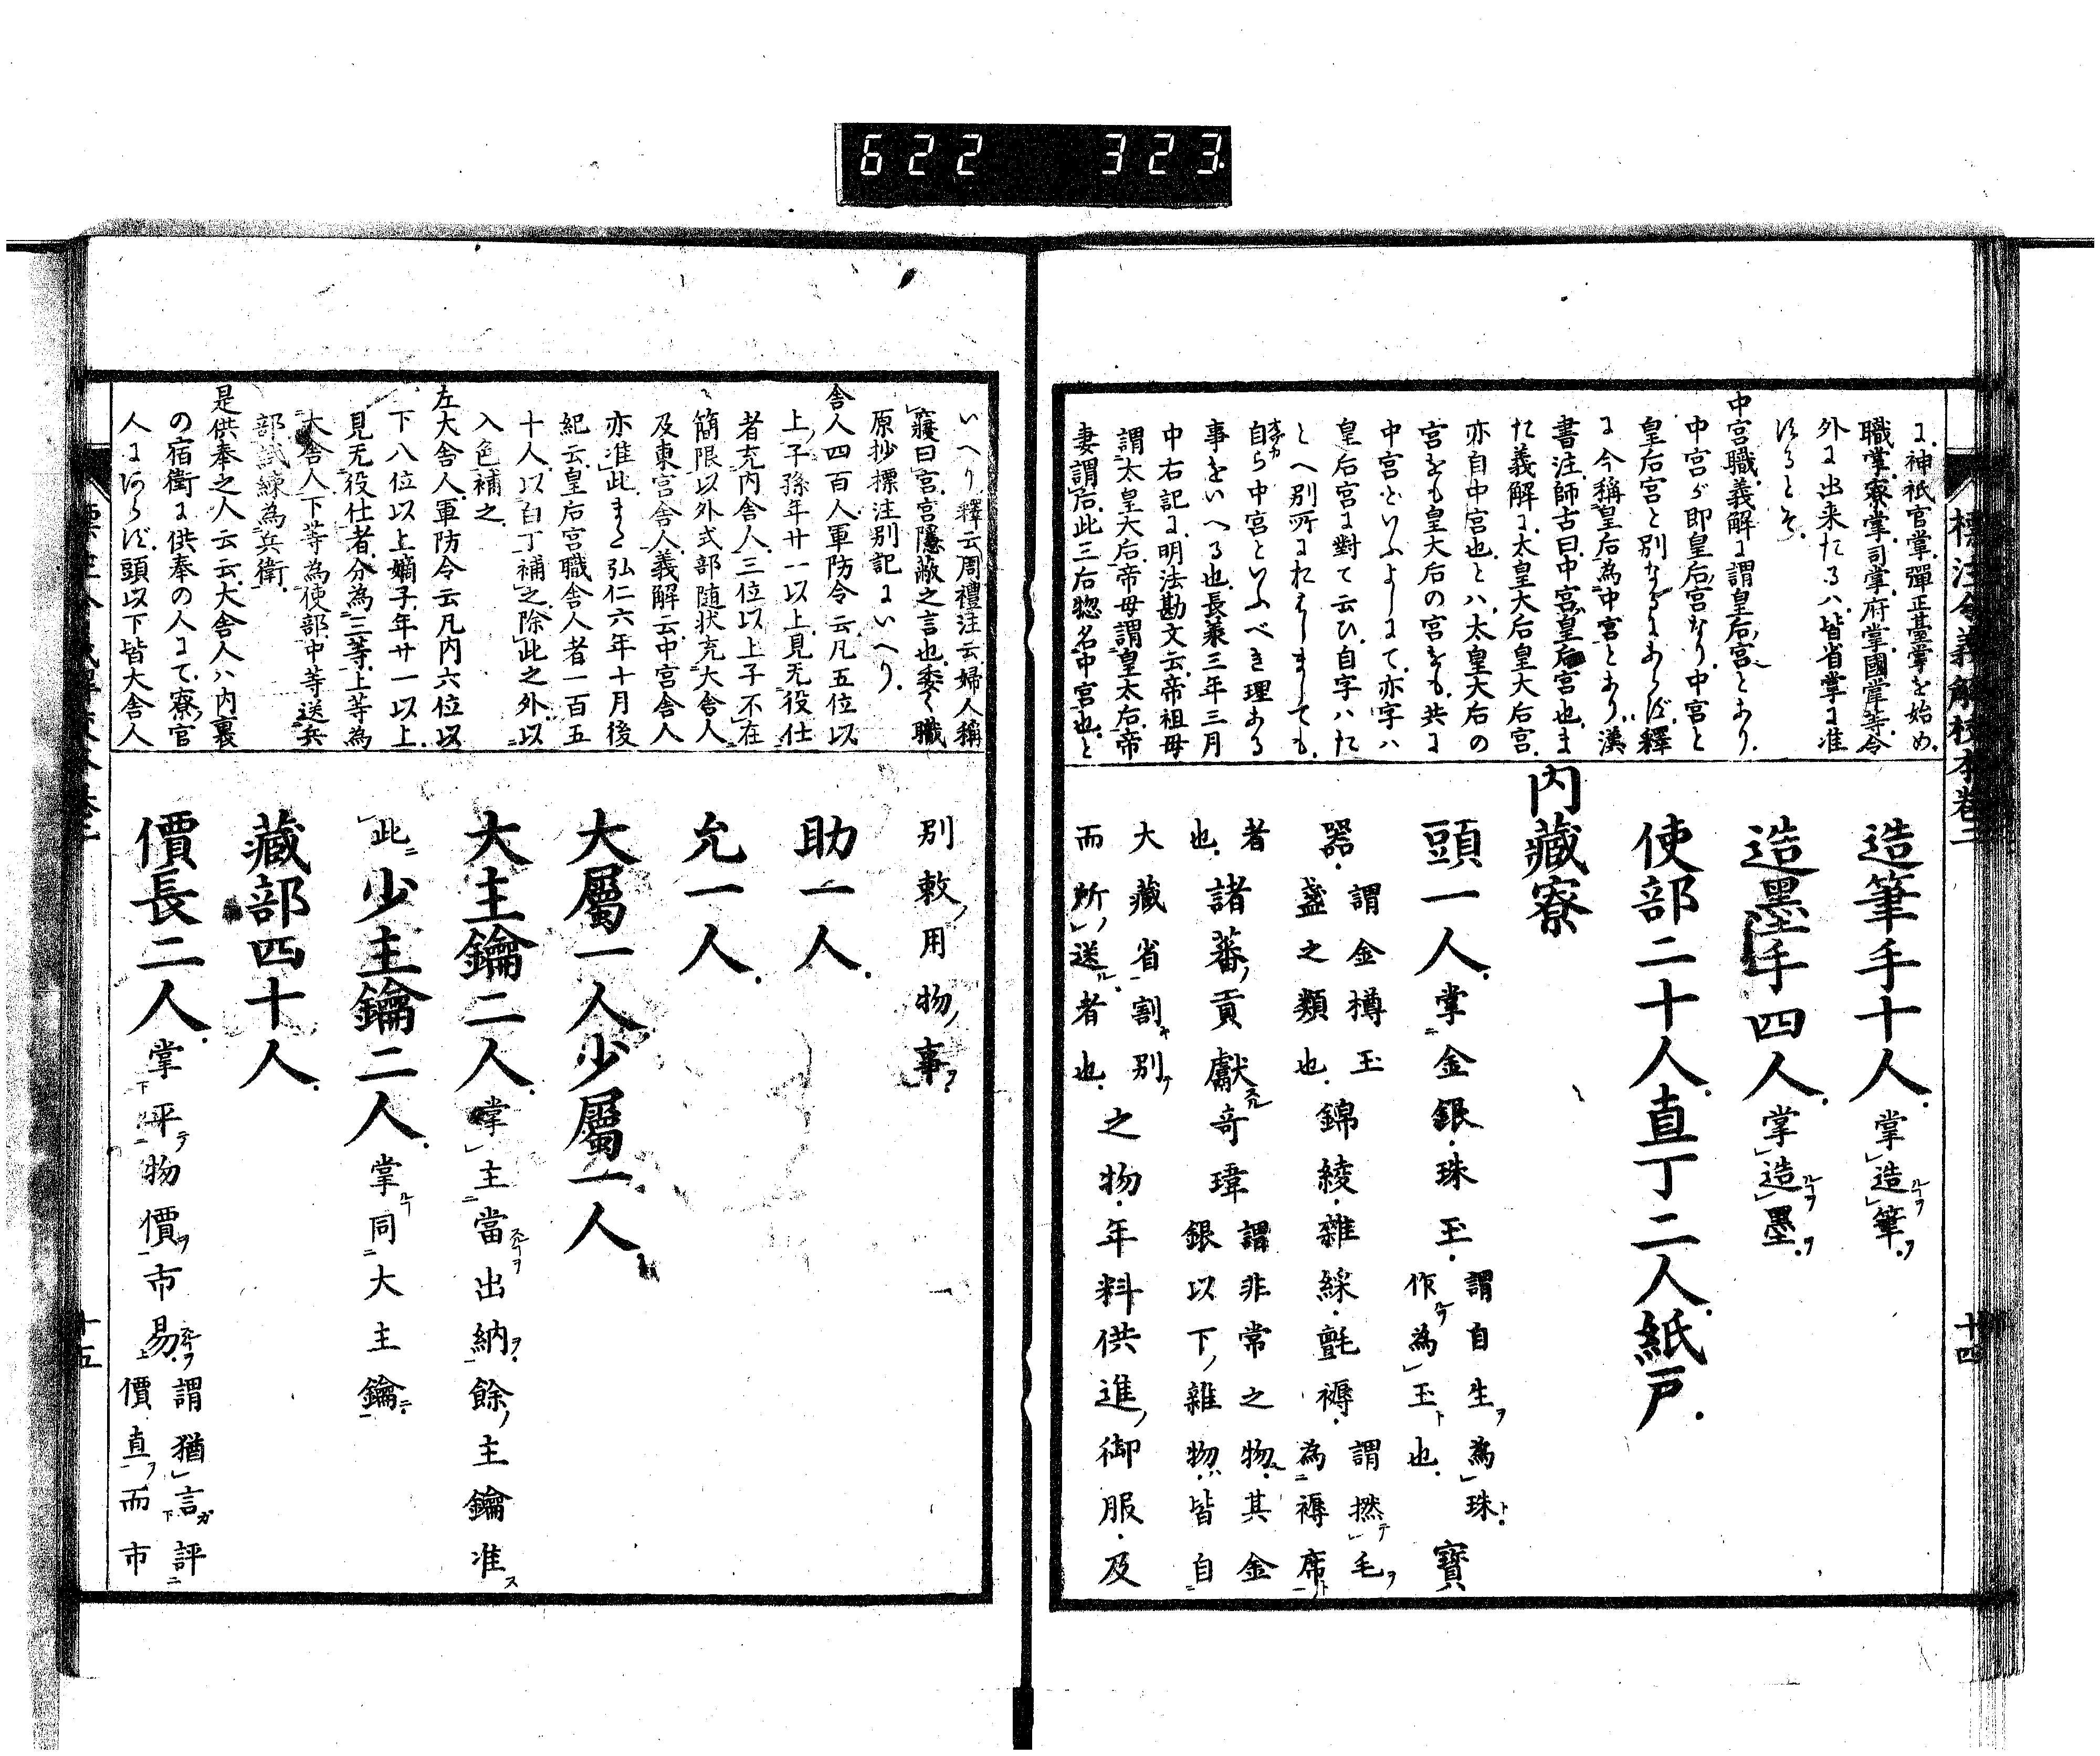 622 323
標注令義解校本卷二
十四
に神祇官掌彈正臺掌を始め
職掌寮掌司掌府掌國掌等令
外に出来たるハ皆省掌に准
するとぞ
中宮職義解に謂皇后宮とあり
中宮が即皇后宮なり中宮と
皇后宮と別なるにあらず釋
に今稱皇后為中宮とあり漢
書注師古曰中宮皇后宮也ま
た義解に太皇大后皇大后宮
亦自中宮也とハ太皇大后の
宮をも皇大后の宮をも共に
中宮といふよしにて亦字ハ
皇后宮に對て云ひ自字ハた
とへ別所におはしましても
自ら中宮といふべき理ある
事をいへる也長秉三年三月
中右記に明法勘文云帝祖母
謂太皇大后帝母謂皇太后帝
妻謂后此三后惣名中宮也と
造筆手十人掌造筆
造墨手四人掌造墨
使部二十人直丁二人紙戸
内藏寮
頭一人掌金銀珠玉謂自生為珠作為玉也寶
器謂金樽玉盞之類也錦綾雜綵氈褥謂撚毛為褥席
者也諸蕃貢獻奇瑋謂非常之物其金銀以下雜物皆自
大藏省割別而所送者也之物年料供進御服及
いへり釋云周禮注云婦人稱
寢曰宮宮隱蔽之言也委く職
原抄標注別記にいへり
舎人四百人軍防令云凡五位以
上子孫年廿一以上見无役仕
者充内舎人三位以上子不在
簡限以外式部随状充大舎人
及東宮舎人義解云中宮舎人
亦准此また弘仁六年十月後
紀云皇后宮職舎人者一百五
十人以白丁補之除此之外以
入色補之
左大舎人軍防令云凡内六位以
下八位以上嫡子年廿一以上
見无役仕者分為三等上等為
大舎人下等為使部中等送兵
部試練為兵衛
是供奉之人云云大舎人ハ内裏
の宿衛に供奉の人にて寮官
人にあらず頭以下皆大舎人
別敕用物事
助一人
允一人
大屬一人少屬一人
大主鑰二人掌主當出納餘主鑰准
此少主鑰二人掌同大主鑰
藏部四十人
價長二人掌平物價市易謂猶言評價直而市
十五